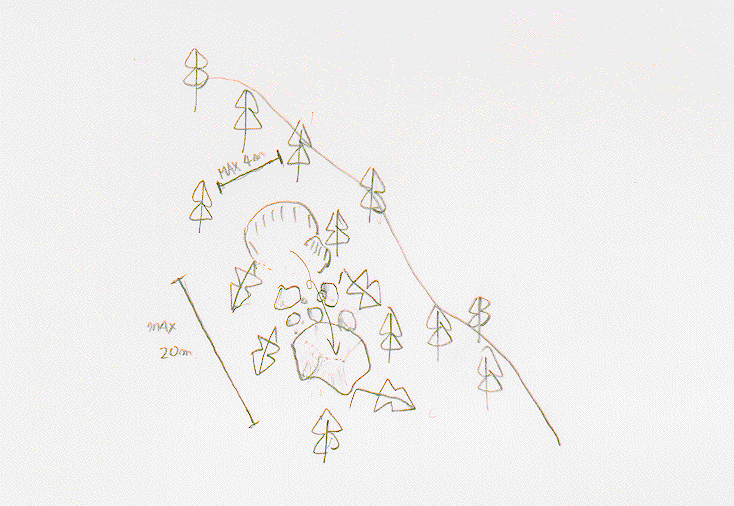 MAX 4m
MAX
20m